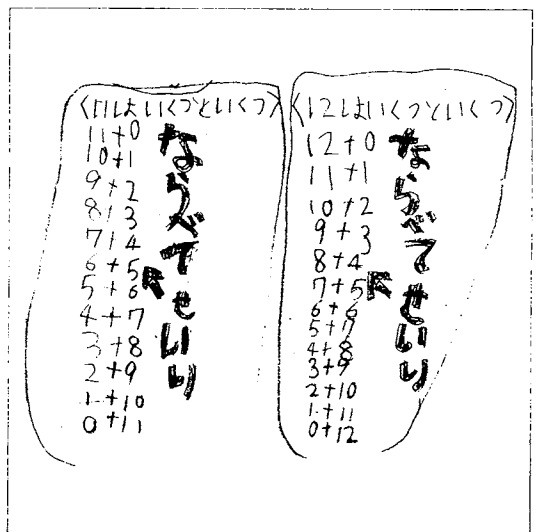 〈11はいくつといくつ〉
11+0
10+1
9+2
8+3
7+4
6+5
5+6
4+7
3+8
2+9
1+10
0+11
ならべてせいり
〈12はいくつといくつ〉
12+0
11+1
10+2
9+3
8+4
7+5
6+6
5+7
4+8
3+9
2+10
1+11
0+12
ならべてせいり